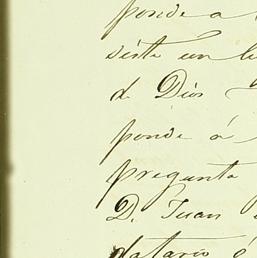 ponde a
siste un
d. Dios
ponde á
pregunta
D. Juan
datario é